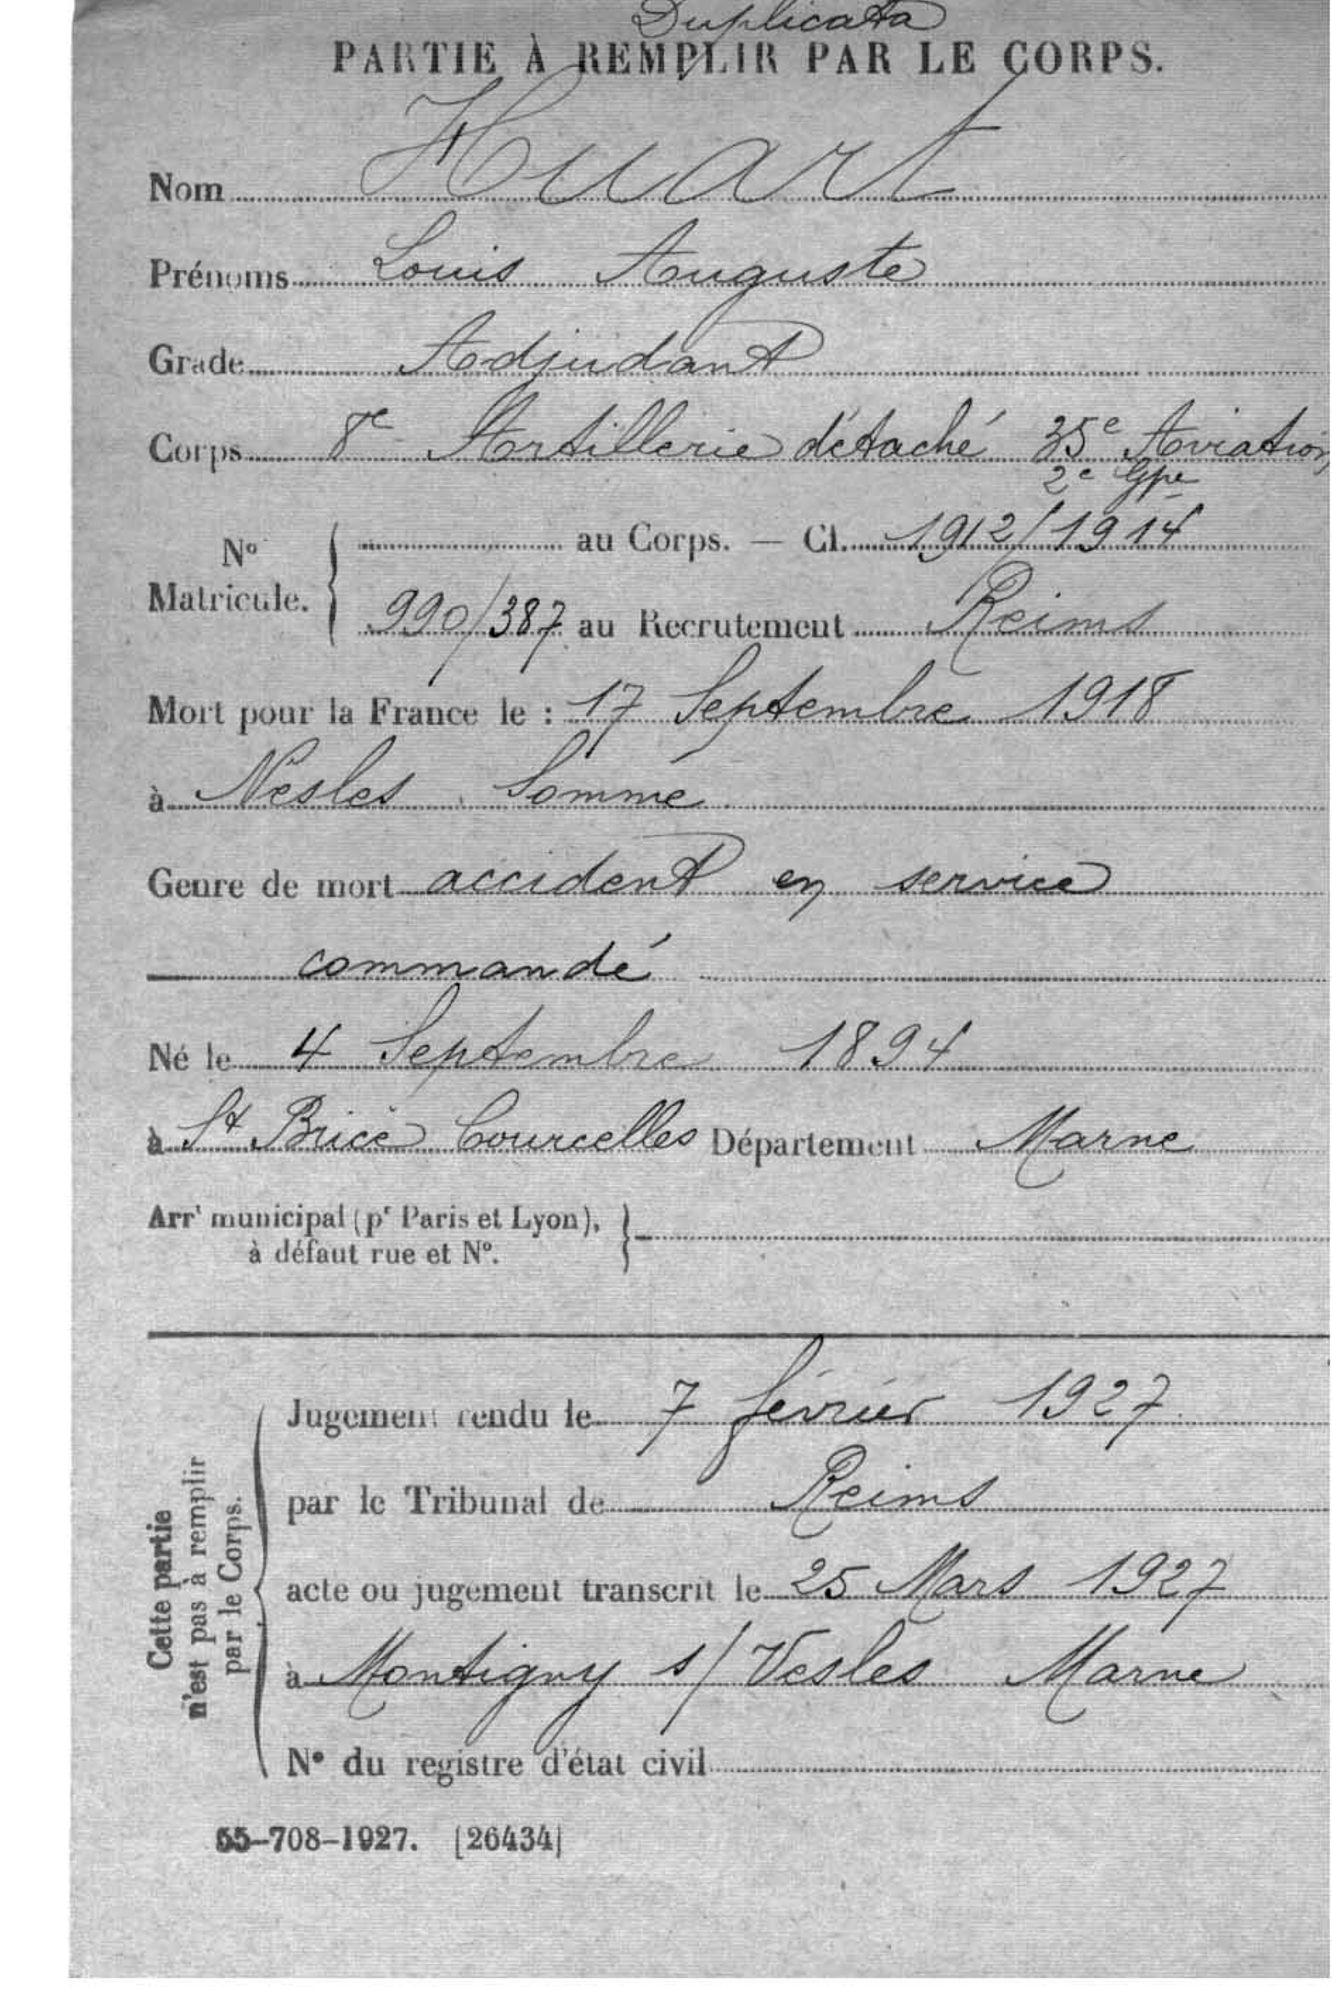 Duplicata
PARTIE À REMPLIR PAR LE CORPS.
Nom Huart
Prénoms Louis Auguste
Grade Adjudant
Corps 8e Artillerie détaché 35e Aviation
2e Gpe
N° Matricule. { au Corps. — Cl. 1912/1914
990/387 au Recrutement Reims
Mort pour la France le : 17 Septembre 1918
à Nesles Somme
Genre de mort accident en service
commandé
Né le 4 Septembre 1894
à St Brice Courcelles Département Marne
Arrt municipal (pr Paris et Lyon), }
à défaut rue et N°.
Cette partie
n'est pas à remplir
par le Corps.
Jugement rendu le 7 février 1927
par le Tribunal de Reims
acte ou jugement transcrit le 25 Mars 1927
à Montigny s/ Vesles Marne
N° du registre d'état civil
55-708-1927. [26434]